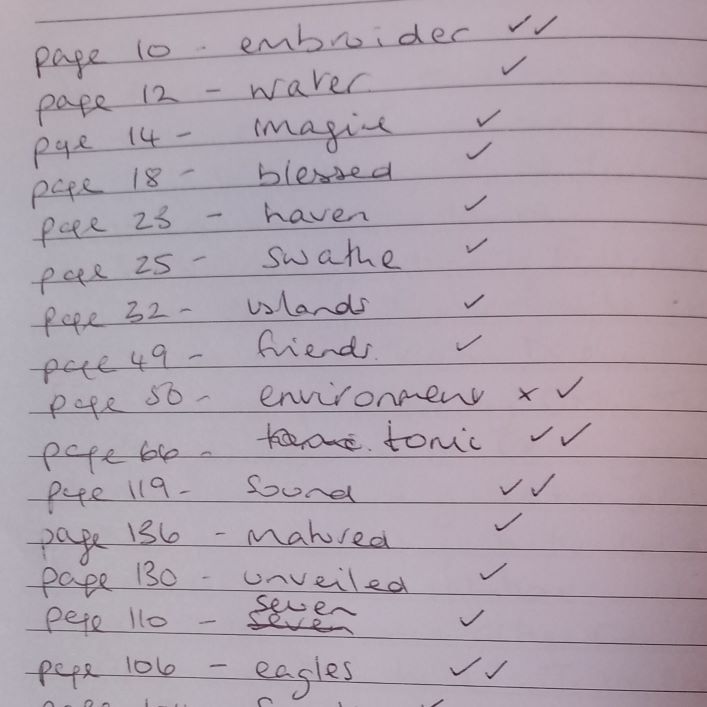 page 10 - embroider ✓✓
page 12 - water ✓
page 14 - imagine ✓
page 18 - blessed ✓
page 23 - haven ✓
page 25 - swathe ✓
page 32 - islands ✓
page 49 - friends ✓
page 50 - environment × ✓
page 66 - tonic ✓✓
page 119 - sound ✓✓
page 136 - matured ✓
page 130 - unveiled ✓
page 110 - seven ✓
page 106 - eagles ✓✓